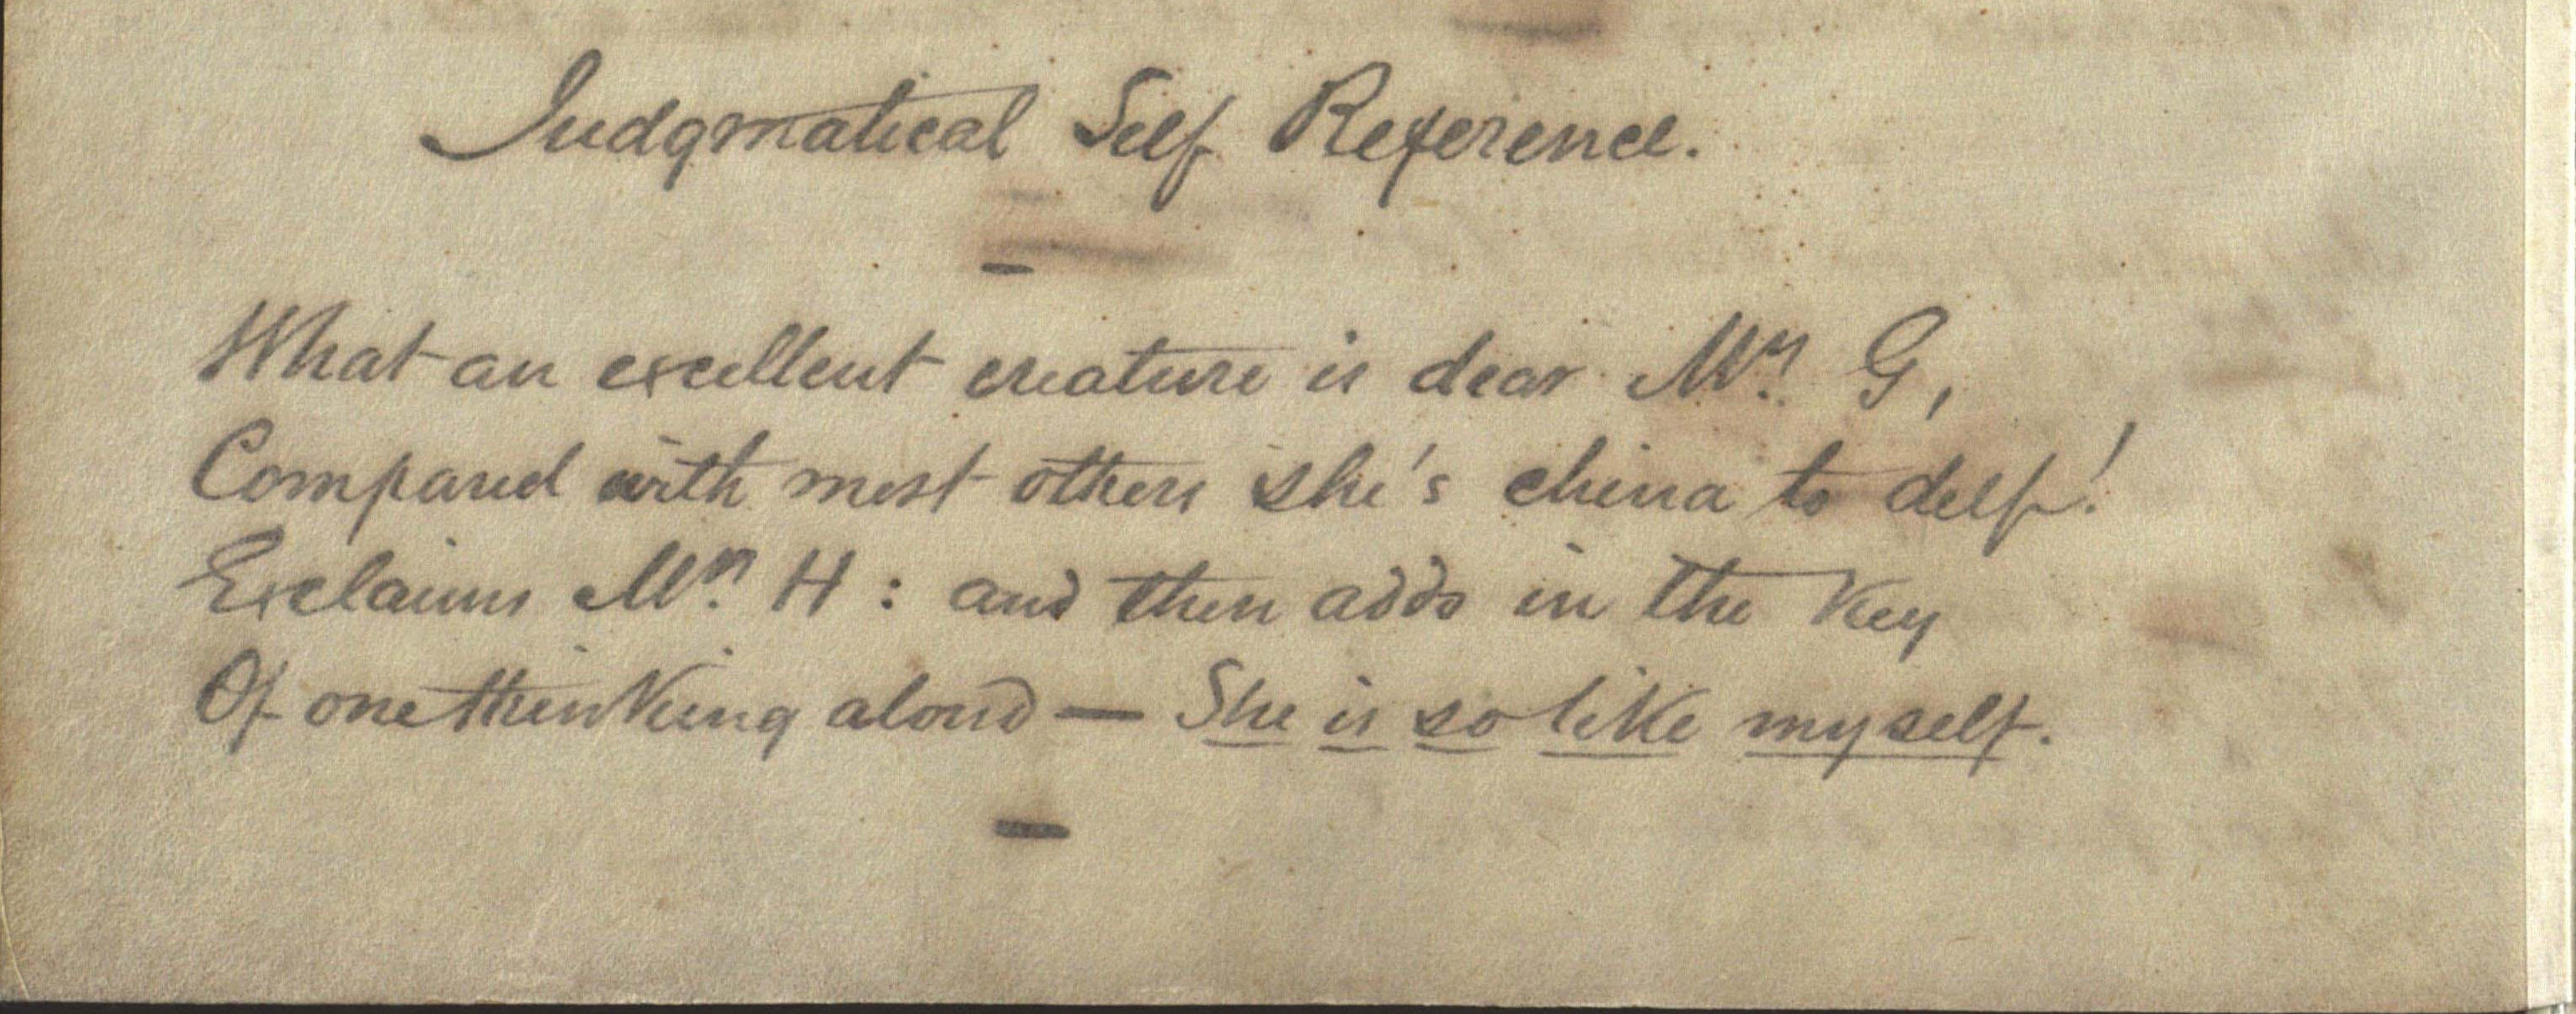 Judgmatical Self Reference.
What an excellent creature is dear Mrs. G,
Compared with most others she's china to delf!
Exclaims Mrs. H: and then adds in the key
Of one thinking aloud — She is so like myself.